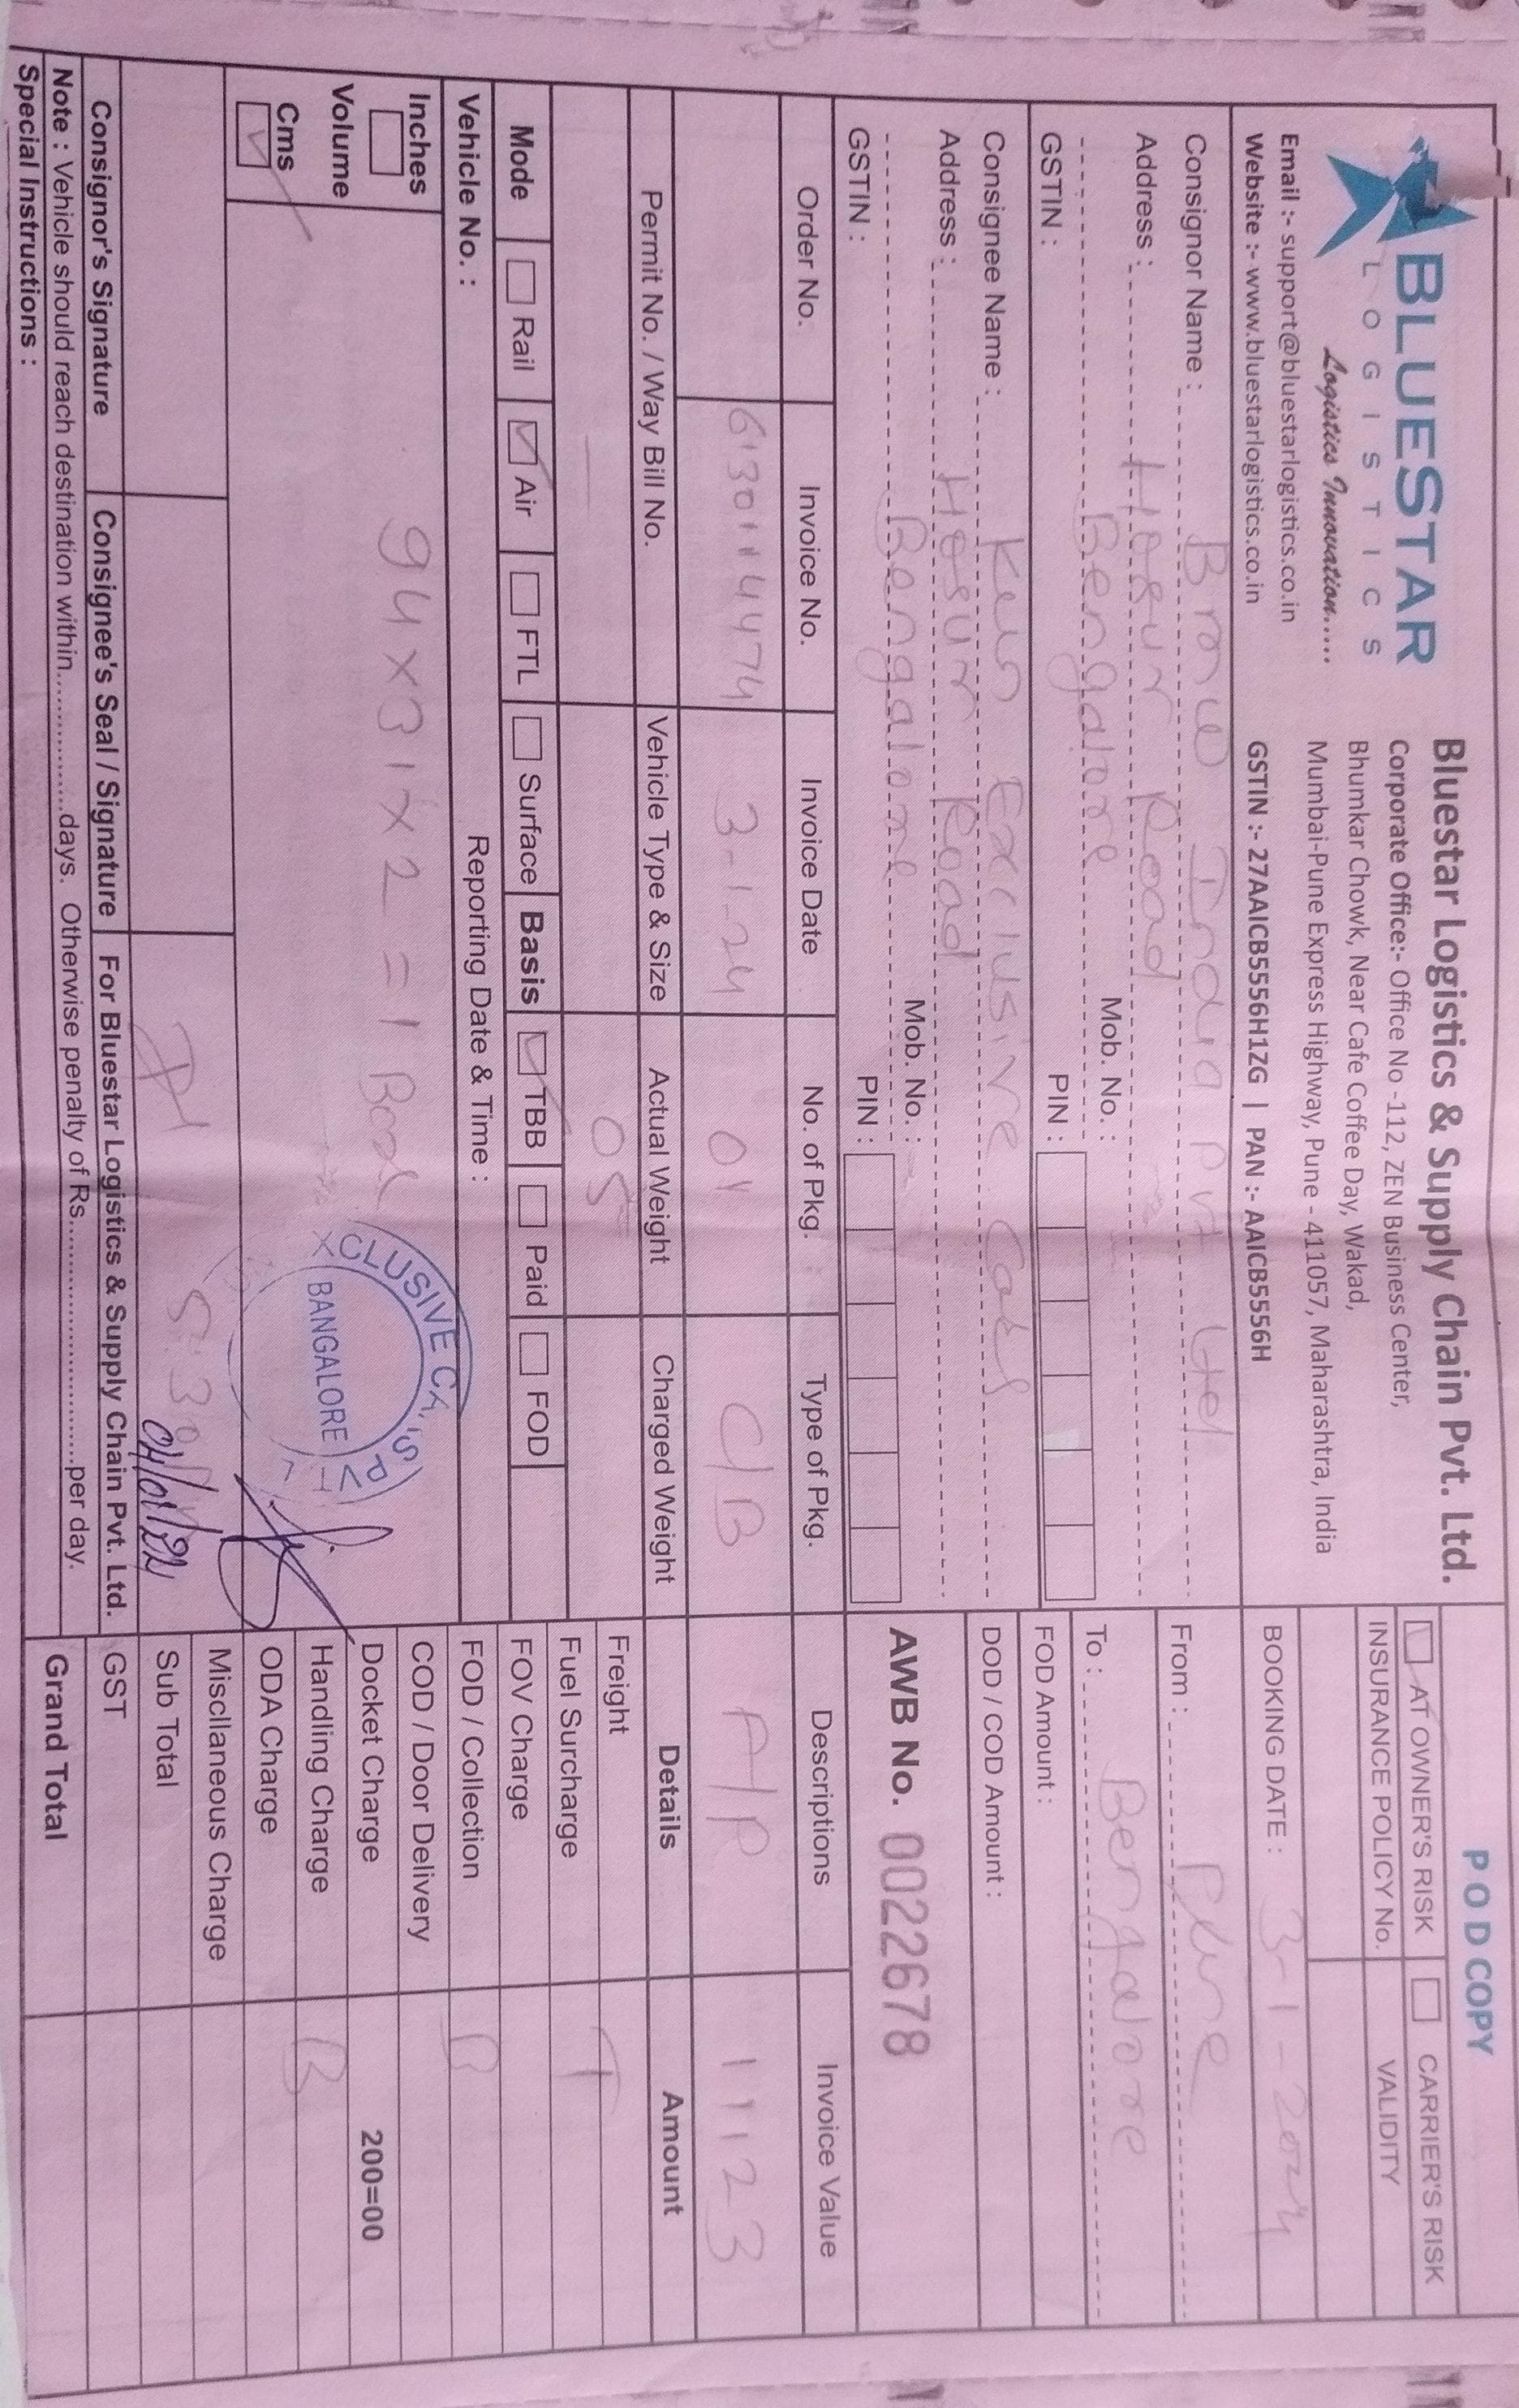 BLUESTAR
LOGISTICS
Logistics Innovation.....
Email :- support@bluestarlogistics.co.in
Website :- www.bluestarlogistics.co.in
Bluestar Logistics & Supply Chain Pvt. Ltd.
Corporate Office:- Office No -112, ZEN Business Center,
Bhumkar Chowk, Near Cafe Coffee Day, Wakad,
Mumbai-Pune Express Highway, Pune - 411057, Maharashtra, India
GSTIN :- 27AAICB5556H1ZG | PAN :- AAICB5556H
POD COPY
AT OWNER'S RISK CARRIER'S RISK
INSURANCE POLICY No. VALIDITY
BOOKING DATE : 3-1-2024
Consignor Name : Bmw India Pvt Ltd
Address : Hosur Road
Bengalore Mob. No. :
GSTIN : PIN :
From : Pune
To : Bengalore
FOD Amount :
DOD / COD Amount :
Consignee Name : Kun Exclusive Cars
Address : Hosur Road
Bengalore Mob. No. :
GSTIN : PIN :
AWB No. 0022678
Order No. Invoice No. Invoice Date No. of Pkg. Type of Pkg. Descriptions Invoice Value
3-1-24 01 C/B 11123
Permit No. / Way Bill No. Vehicle Type & Size Actual Weight Charged Weight Details Amount
05
Mode Rail Air FTL Surface Basis TBB Paid FOD
Vehicle No. : Reporting Date & Time :
Inches
Volume
Cms
94x31x2 = 1 Box
XCLUSIVE CARS PVT
BANGALORE
Freight
Fuel Surcharge T
FOV Charge
FOD / Collection B
COD / Door Delivery
Docket Charge 200=00
Handling Charge B
ODA Charge
Miscllaneous Charge
Sub Total
GST
Grand Total
04/01/24
Consignor's Signature Consignee's Seal / Signature For Bluestar Logistics & Supply Chain Pvt. Ltd.
Note : Vehicle should reach destination within.................days. Otherwise penalty of Rs.............................per day.
Special Instructions :